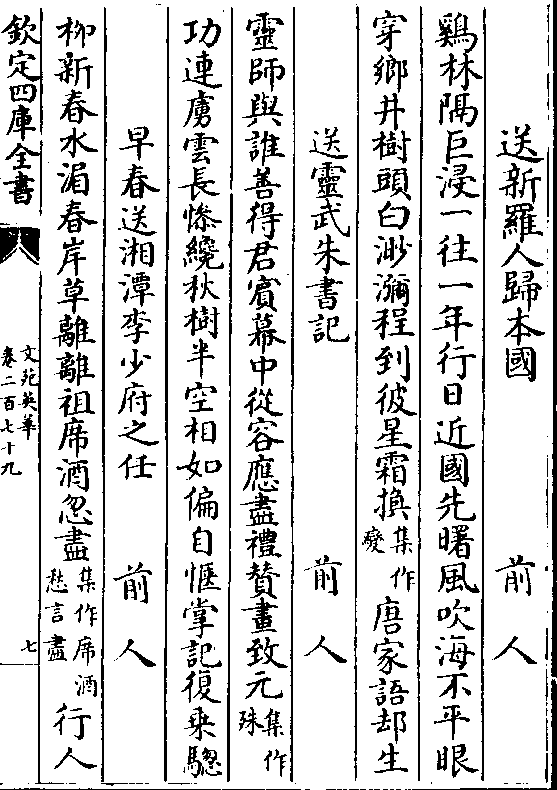 送新羅人歸本國　前人
鷄林隅巨浸一往一年行日近國先曙風吹海不平眼
穿鄉井樹頭白渺瀰程到彼星霜換集作變唐家語却生
送靈武朱書記　前人
靈師與誰善得君賓幕中從容應盡禮贊畫致元集作殊
功連虜雲長慘繞秋樹半空相如偏自愜掌記復乗驄
早春送湘潭李少府之任　前人
栁新春水湄春岸草離離祖席酒忽盡集作席酒愁言盡行人
欽定四庫全書
文苑英華
卷二百七十九
七